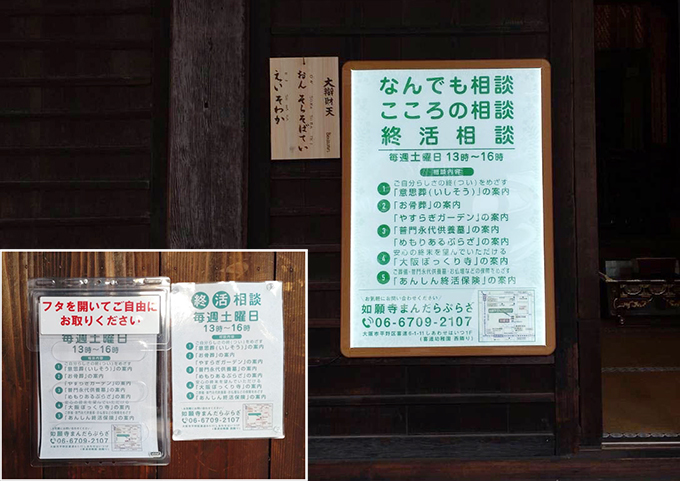 大辯財天
おん そらそばてい
えい そわか
なんでも相談
こころの相談
終活相談
毎週土曜日 13時〜16時
相談内容
ご自分らしさの終(つい)をめざす
1 「意思葬(いしそう)」の案内
2 「お骨葬」の案内
「やすらぎガーデン」の案内
3 「普門永代供養墓」の案内
「めもりあるぷらざ」の案内
安心の終末を望んでいただける
4 「大阪ぽっくり寺」の案内
5 「あんしん終活保険」の案内
お気軽にお問い合わせください
如願寺まんだらぷらざ
06-6709-2107
フタを開いてご自由に
お取りください
毎週土曜日
13時〜16時
「意思葬(いしそう)」の案内
「お骨葬」の案内
「やすらぎガーデン」の案内
「普門永代供養墓」の案内
「めもりあるぷらざ」の案内
「大阪ぽっくり寺」の案内
「あんしん終活保険」の案内
如願寺まんだらぷらざ
06-6709-2107
終活相談
毎週土曜日
13時〜16時
「意思葬(いしそう)」の案内
「お骨葬」の案内
「やすらぎガーデン」の案内
「普門永代供養墓」の案内
「めもりあるぷらざ」の案内
「大阪ぽっくり寺」の案内
「あんしん終活保険」の案内
如願寺まんだらぷらざ
06-6709-2107